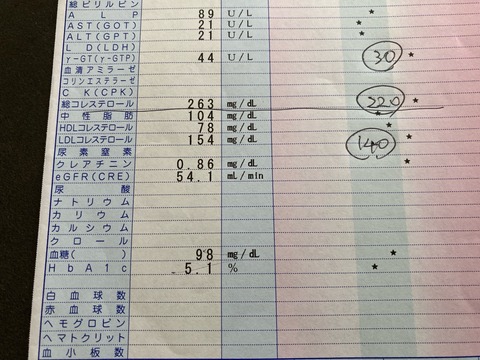 総ビリルビン
ALP 89 U/L *
AST(GOT) 21 U/L *
ALT(GPT) 21 U/L *
LD(LDH)
γ-GT(γ-GTP) 44 U/L 30 *
血清アミラーゼ
コリンエステラーゼ
CK(CPK)
総コレステロール 263 mg/dL 220 *
中性脂肪 104 mg/dL *
HDLコレステロール 78 mg/dL *
LDLコレステロール 154 mg/dL 140 *
尿素窒素
クレアチニン 0.86 mg/dL *
eGFR(CRE) 54.1 mL/min
尿酸
ナトリウム
カリウム
カルシウム
クロール
血糖( ) 98 mg/dL *
HbA1c 5.1 % *
白血球数
赤血球数
ヘモグロビン
ヘマトクリット
血小板数